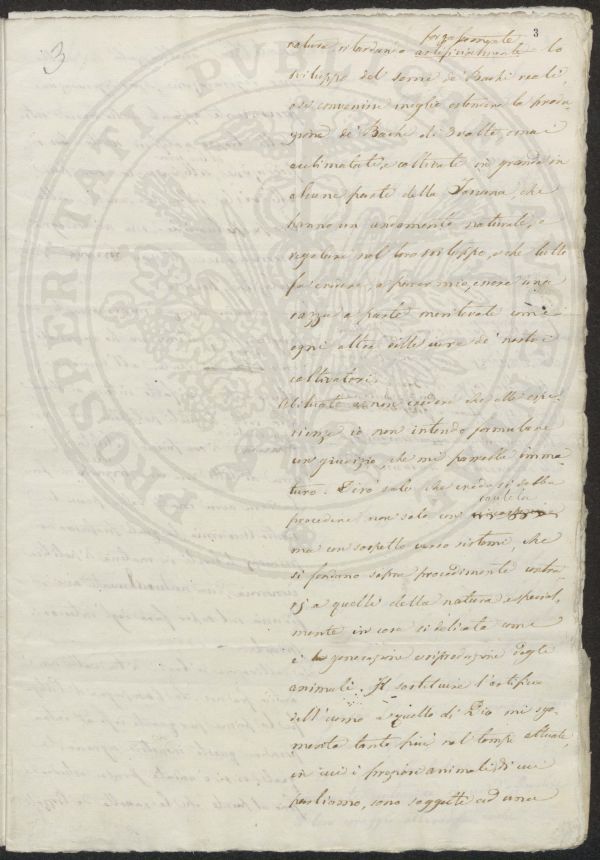 3
3
forzosamente
natura, ritardando artificialmente lo
sviluppo del seme de' Bachi reali,
o se convenisse meglio ottenere la produ-
zione de' Bachi di 3 volte, omai
acclimatate, e coltivate in grande in
alcune parte della Toscana, che
hanno un andamento naturale, e
regolare nel loro sviluppo, e che tutto
fa credere, a parer mio, essere una
razza a parte meritevole come
ogni altra delle cure de' nostri
coltivatori.
Abituato a non credere che alle espe-
rienze io non intendo formulare
un giudizio, che mi parrebbe imma-
turo. Dirò solo, che credo si debba
cautela
procedere non solo con
ma con sospetto verso sistemi, che
si fondano sopra procedimenti contra-
rj a quelli della natura, e special-
mente in cose sì delicate come
è la generazione e riproduzione degli
animali. Il sostituire l'artifizio
dell'uomo a quello di Dio mi sgo-
menta tanto più nel tempo attuale,
in cui i preziosi animali, di cui
parliamo, sono soggetti ad una